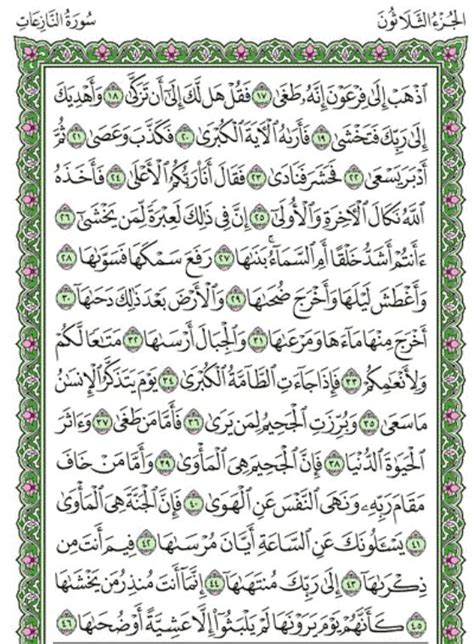 الجزء الثلاثون
سورة النازعات
ٱذْهَبْ إِلَىٰ فِرْعَوْنَ إِنَّهُۥ طَغَىٰ ١٧ فَقُلْ هَل لَّكَ إِلَىٰٓ أَن تَزَكَّىٰ ١٨ وَأَهْدِيَكَ
إِلَىٰ رَبِّكَ فَتَخْشَىٰ ١٩ فَأَرَىٰهُ ٱلْءَايَةَ ٱلْكُبْرَىٰ ٢٠ فَكَذَّبَ وَعَصَىٰ ٢١ ثُمَّ
أَدْبَرَ يَسْعَىٰ ٢٢ فَحَشَرَ فَنَادَىٰ ٢٣ فَقَالَ أَنَا۠ رَبُّكُمُ ٱلْأَعْلَىٰ ٢٤ فَأَخَذَهُ
ٱللَّهُ نَكَالَ ٱلْءَاخِرَةِ وَٱلْأُولَىٰٓ ٢٥ إِنَّ فِى ذَٰلِكَ لَعِبْرَةً لِّمَن يَخْشَىٰٓ ٢٦
ءَأَنتُمْ أَشَدُّ خَلْقًا أَمِ ٱلسَّمَآءُ ۚ بَنَىٰهَا ٢٧ رَفَعَ سَمْكَهَا فَسَوَّىٰهَا ٢٨
وَأَغْطَشَ لَيْلَهَا وَأَخْرَجَ ضُحَىٰهَا ٢٩ وَٱلْأَرْضَ بَعْدَ ذَٰلِكَ دَحَىٰهَآ ٣٠
أَخْرَجَ مِنْهَا مَآءَهَا وَمَرْعَىٰهَا ٣١ وَٱلْجِبَالَ أَرْسَىٰهَا ٣٢ مَتَٰعًا لَّكُمْ
وَلِأَنْعَٰمِكُمْ ٣٣ فَإِذَا جَآءَتِ ٱلطَّآمَّةُ ٱلْكُبْرَىٰ ٣٤ يَوْمَ يَتَذَكَّرُ ٱلْإِنسَٰنُ
مَا سَعَىٰ ٣٥ وَبُرِّزَتِ ٱلْجَحِيمُ لِمَن يَرَىٰ ٣٦ فَأَمَّا مَن طَغَىٰ ٣٧ وَءَاثَرَ
ٱلْحَيَوٰةَ ٱلدُّنْيَا ٣٨ فَإِنَّ ٱلْجَحِيمَ هِىَ ٱلْمَأْوَىٰ ٣٩ وَأَمَّا مَنْ خَافَ
مَقَامَ رَبِّهِۦ وَنَهَى ٱلنَّفْسَ عَنِ ٱلْهَوَىٰ ٤٠ فَإِنَّ ٱلْجَنَّةَ هِىَ ٱلْمَأْوَىٰ
٤١ يَسْـَٔلُونَكَ عَنِ ٱلسَّاعَةِ أَيَّانَ مُرْسَىٰهَا ٤٢ فِيمَ أَنتَ مِن
ذِكْرَىٰهَآ ٤٣ إِلَىٰ رَبِّكَ مُنتَهَىٰهَآ ٤٤ إِنَّمَآ أَنتَ مُنذِرُ مَن يَخْشَىٰهَا
٤٥ كَأَنَّهُمْ يَوْمَ يَرَوْنَهَا لَمْ يَلْبَثُوٓا۟ إِلَّا عَشِيَّةً أَوْ ضُحَىٰهَا ٤٦